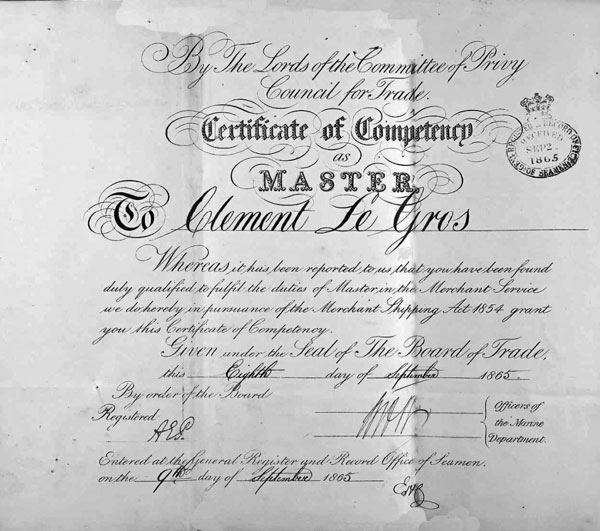 By The Lords of the Committee of Privy
Council for Trade.
Certificate of Competency
as
MASTER
To Clement Le Gros
Whereas it has been reported to us that you have been found
duly qualified to fulfil the duties of Master in the Merchant Service
we do hereby in pursuance of the Merchant Shipping Act 1854 grant
you this Certificate of Competency.
Given under the Seal of The Board of Trade,
this Eighth day of September 1865
By order of the Board
Registered
Officers of
the Marine
Department.
Entered at the General Register and Record Office of Seamen.
on the 9th day of September 1865
REGISTER RECORD OF SEAMEN
RECEIVED
SEP
1865